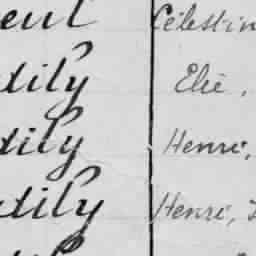 eut Célestin
dily Elie,
dily Henri,
dily Henri,